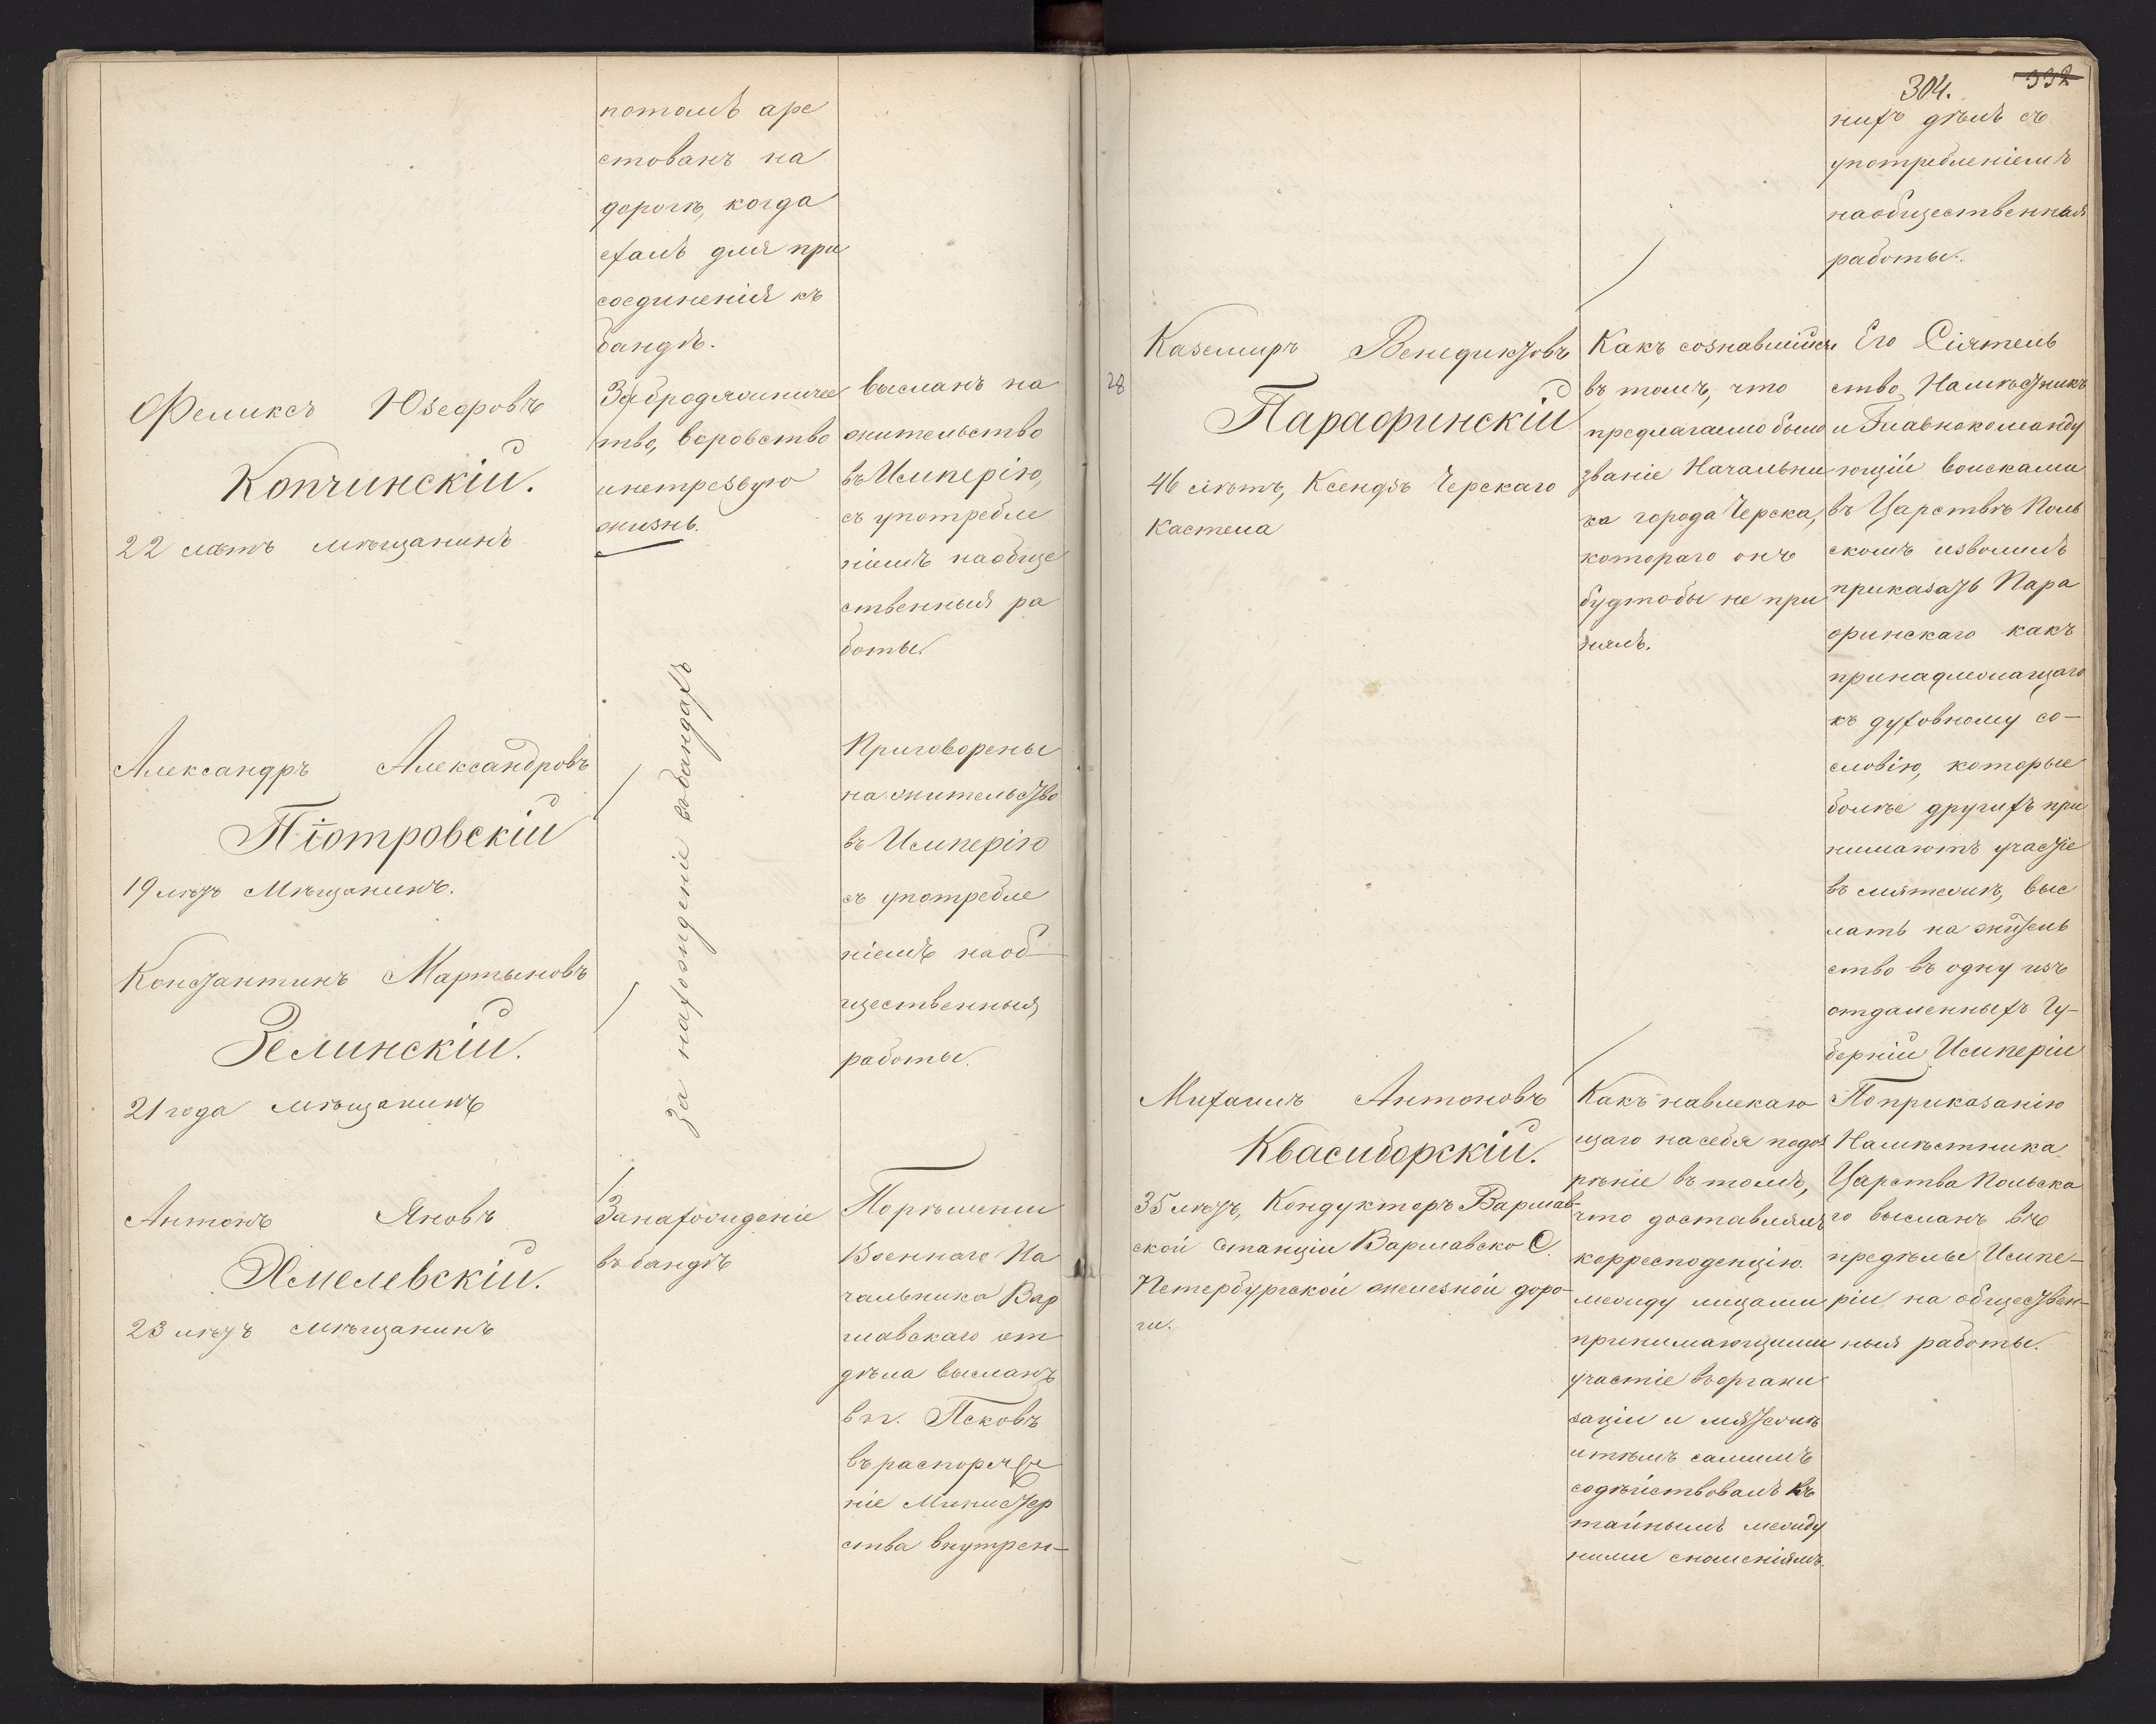 потомъ аре
стованъ на
дорогѣ, когда
ѣхалъ для при
соединенія къ
бандѣ.
Феликсъ Юзефовъ
Копчинскій.
22 лѣтъ мѣщанинъ
За бродяжничес
тво, воровство
и нетрезвую
жизнь.
высланъ на
жительство
въ Имперію,
съ употребле
ніемъ на обще
ственныя ра
боты.
Александръ Александровъ
Піотровскій
19 лѣтъ Мѣщанинъ.
Константинъ Мартыновъ
Зелинскій.
21 года мѣщанинъ
За нахожденіе въ бандахъ
Приговорены
на жительство
въ Имперію
съ употребле
ніемъ на об-
щественныя
работы.
Антонъ Яновъ
Хмелевскій.
23 лѣтъ мѣщанинъ
За нахожденіе
въ бандѣ
По рѣшенiи
Военнаго На
чальника Вар
шавскаго от
дѣла высланъ
въ г. Псковъ
въ распоряже
ніе Министер
ства внутрен-
304.
332
нихъ дѣлъ съ
употребленіемъ
на общественныя
работы.
28
Каземиръ Венедиктовъ
Парафинскій
46 лѣтъ, Ксендзъ Черскаго
Костела
Какъ сознавшійся
въ томъ, что
предлагаемо было
званіе Начальни
ка города Черска,
котораго онъ
будтобы не при
нялъ.
Его Сіятель
ство Намѣстникъ
и Главнокоманду
ющій войсками
въ Царствѣ Поль
скомъ изволилъ
приказать Пара
финскаго какъ
принадлежащаго
къ духовному со-
словію, которые
болѣе другихъ при
нимаютъ участіе
въ мятежѣ, выс
лать на житель
ство въ одну изъ
отдаленныхъ Гу-
берній Имперіи
Михаилъ Антоновъ
Квасиборскій.
35 лѣтъ, Кондукторъ Варшав-
ской Станціи Варшавско С.
Петербургской железной доро-
ги.
Какъ навлекаю
щаго на себя подоз
рѣніе въ томъ,
что доставлялъ
корресподенцію
между лицами
принимающими
участіе въ органи
заціи и мятежѣ
и тѣмъ самимъ
содѣйствовалъ къ
тайнымъ между
ними сношеніямъ.
По приказанію
Намѣстника
Царства Польска
го высланъ въ
предѣлы Импе-
ріи на обществен-
ныя работы.